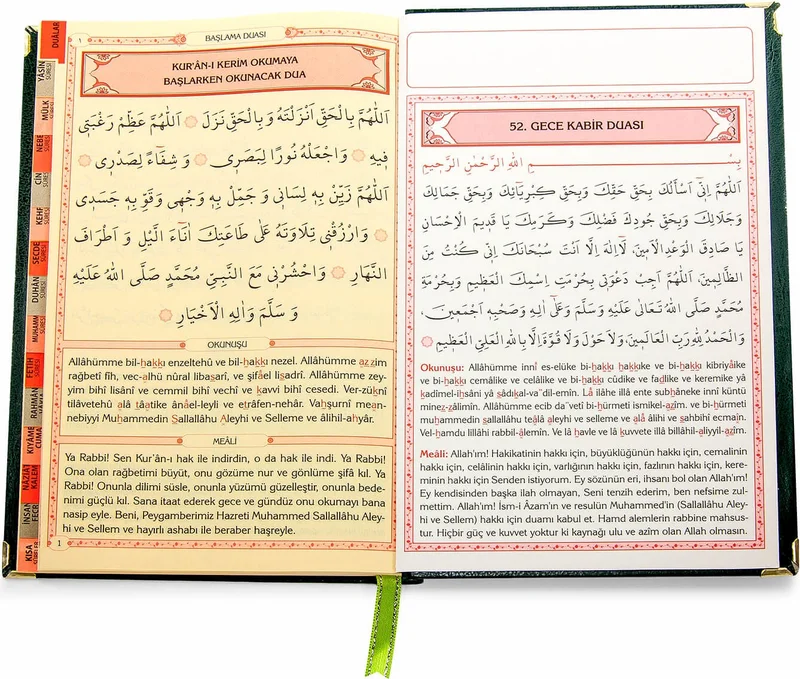 DUALAR
YÂSİN
SÛRESİ
MÜLK
NEBE
SÛRESİ
CİN
SÛRESİ
KEHF
SÛRESİ
SECDE
SÛRESİ
DUHÂN
SÛRESİ
MUHAMMED
FETİH
SÛRESİ
RAHMÂN
KIYÂME
CUMA
NÂZİÂT
KALEM
İNSAN
FECR
KISA
١
BAŞLAMA DUASI
KUR'ÂN-I KERİM OKUMAYA
BAŞLARKEN OKUNACAK DUA
اَللّٰهُمَّ بِالْحَقِّ اَنْزَلْتَهُ وَبِالْحَقِّ نَزَلَ اَللّٰهُمَّ عَظِّمْ رَغْبَتِى
فِيهِ وَاجْعَلْهُ نُورًا لِبَصَرِى وَشِفَاءً لِصَدْرِى
اَللّٰهُمَّ زَيِّنْ بِهِ لِسَانِى وَجَمِّلْ بِهِ وَجْهِى وَقَوِّ بِهِ جَسَدِى
وَارْزُقْنِى تِلَاوَتَهُ عَلٰى طَاعَتِكَ اٰنَاءَ الَّيْلِ وَاَطْرَافَ
النَّهَارِ وَاحْشُرْنِى مَعَ النَّبِىِّ مُحَمَّدٍ صَلَّى اللهُ عَلَيْهِ
وَسَلَّمَ وَاٰلِهِ الْاَخْيَارِ
OKUNUŞU
Allâhümme bil-hakkı enzeltehû ve bil-hakkı nezel. Allâhümme azzim
rağbetî fîh, vec-alhü nûral libasarî, ve şifâel lisadrî. Allâhümme zey-
yim bihî lisânî ve cemmil bihî vechî ve kavvi bihî cesedî. Ver-züknî
tilâvetehû alâ tâatike ânâel-leyli ve etrâfen-nehâr. Vahşurnî mean-
nebiyyi Muhammedin Sallallâhu Aleyhi ve Selleme ve âlihil-ahyâr.
MEÂLİ
Ya Rabbi! Sen Kur'ân-ı hak ile indirdin, o da hak ile indi. Ya Rabbi!
Ona olan rağbetimi büyüt, onu gözüme nur ve gönlüme şifâ kıl. Ya
Rabbi! Onunla dilimi süsle, onunla yüzümü güzelleştir, onunla bede-
nimi güçlü kıl. Sana itaat ederek gece ve gündüz onu okumayı bana
nasip eyle. Beni, Peygamberimiz Hazreti Muhammed Sallallâhu Aley-
hi ve Sellem ve hayırlı ashabı ile beraber haşreyle.
1
52. GECE KABİR DUASI
بِسْــــمِ اللهِ الرَّحْمٰنِ الرَّحِيمِ
اَللّٰهُمَّ اِنِّى اَسْاَلُكَ بِحَقِّ حَقِّكَ وَبِحَقِّ كِبْرِيَائِكَ وَبِحَقِّ جَمَالِكَ
وَجَلَالِكَ وَبِحَقِّ جُودِكَ فَضْلِكَ وَكَرَمِكَ يَا قَدِيمَ الْاِحْسَانِ
يَا صَادِقَ الْوَعْدِ الْاَمِينَ، لَا اِلٰهَ اِلَّا اَنْتَ سُبْحَانَكَ اِنِّى كُنْتُ مِنَ
الظَّالِمِينَ، اَللّٰهُمَّ اَجِبْ دَعْوَتِى بِحُرْمَتِ اِسْمِكَ الْعَظِيمِ وَبِحُرْمَةِ
مُحَمَّدٍ صَلَّى اللهُ تَعَالٰى عَلَيْهِ وَسَلَّمَ وَعَلٰى اٰلِهِ وَصَحْبِهِ اَجْمَعِينَ.
وَالْحَمْدُ لِلّٰهِ رَبِّ الْعَالَمِينَ، وَلَا حَوْلَ وَلَا قُوَّةَ اِلَّا بِاللهِ الْعَلِىِّ الْعَظِيمِ
Okunuşu: Allâhümme innî es-elüke bi-hakkı hakkıke ve bi-hakkı kibriyâike
ve bi-hakkı cemâlike ve celâlike ve bi-hakkı cûdike ve fadlike ve keremike yâ
kadîmel-ihsâni yâ sâdıkal-va'dil-emin. Lâ ilâhe illâ ente subhâneke inni küntü
minez-zâlimin. Allâhümme ecib da'vetî bi-hürmeti ismikel-azîm. ve bi-hürmeti
muhammedin sallallahu teâlâ aleyhi ve selleme ve alâ âlihi ve sahbihi ecmain.
Vel-hamdu lillâhi rabbil-âlemin. Ve lâ havle ve lâ kuvvete illâ billâhil-aliyyil-azîm.
Meâli: Allah'ım! Hakikatinin hakkı için, büyüklüğünün hakkı için, cemalinin
hakkı için, celâlinin hakkı için, varlığının hakkı için, fazlının hakkı için, kere-
minin hakkı için Senden istiyorum. Ey sözünün eri, ihsanı bol olan Allah'ım!
Ey kendisinden başka ilah olmayan, Seni tenzih ederim, ben nefsime zul-
mettim. Allah'ım! İsm-i Âzam'ın ve resulün Muhammed'in (Sallallâhu Aley-
hi ve Sellem) hakkı için duamı kabul et. Hamd alemlerin rabbine mahsus-
tur. Hiçbir güç ve kuvvet yoktur ki kaynağı ulu ve azîm olan Allah olmasın.